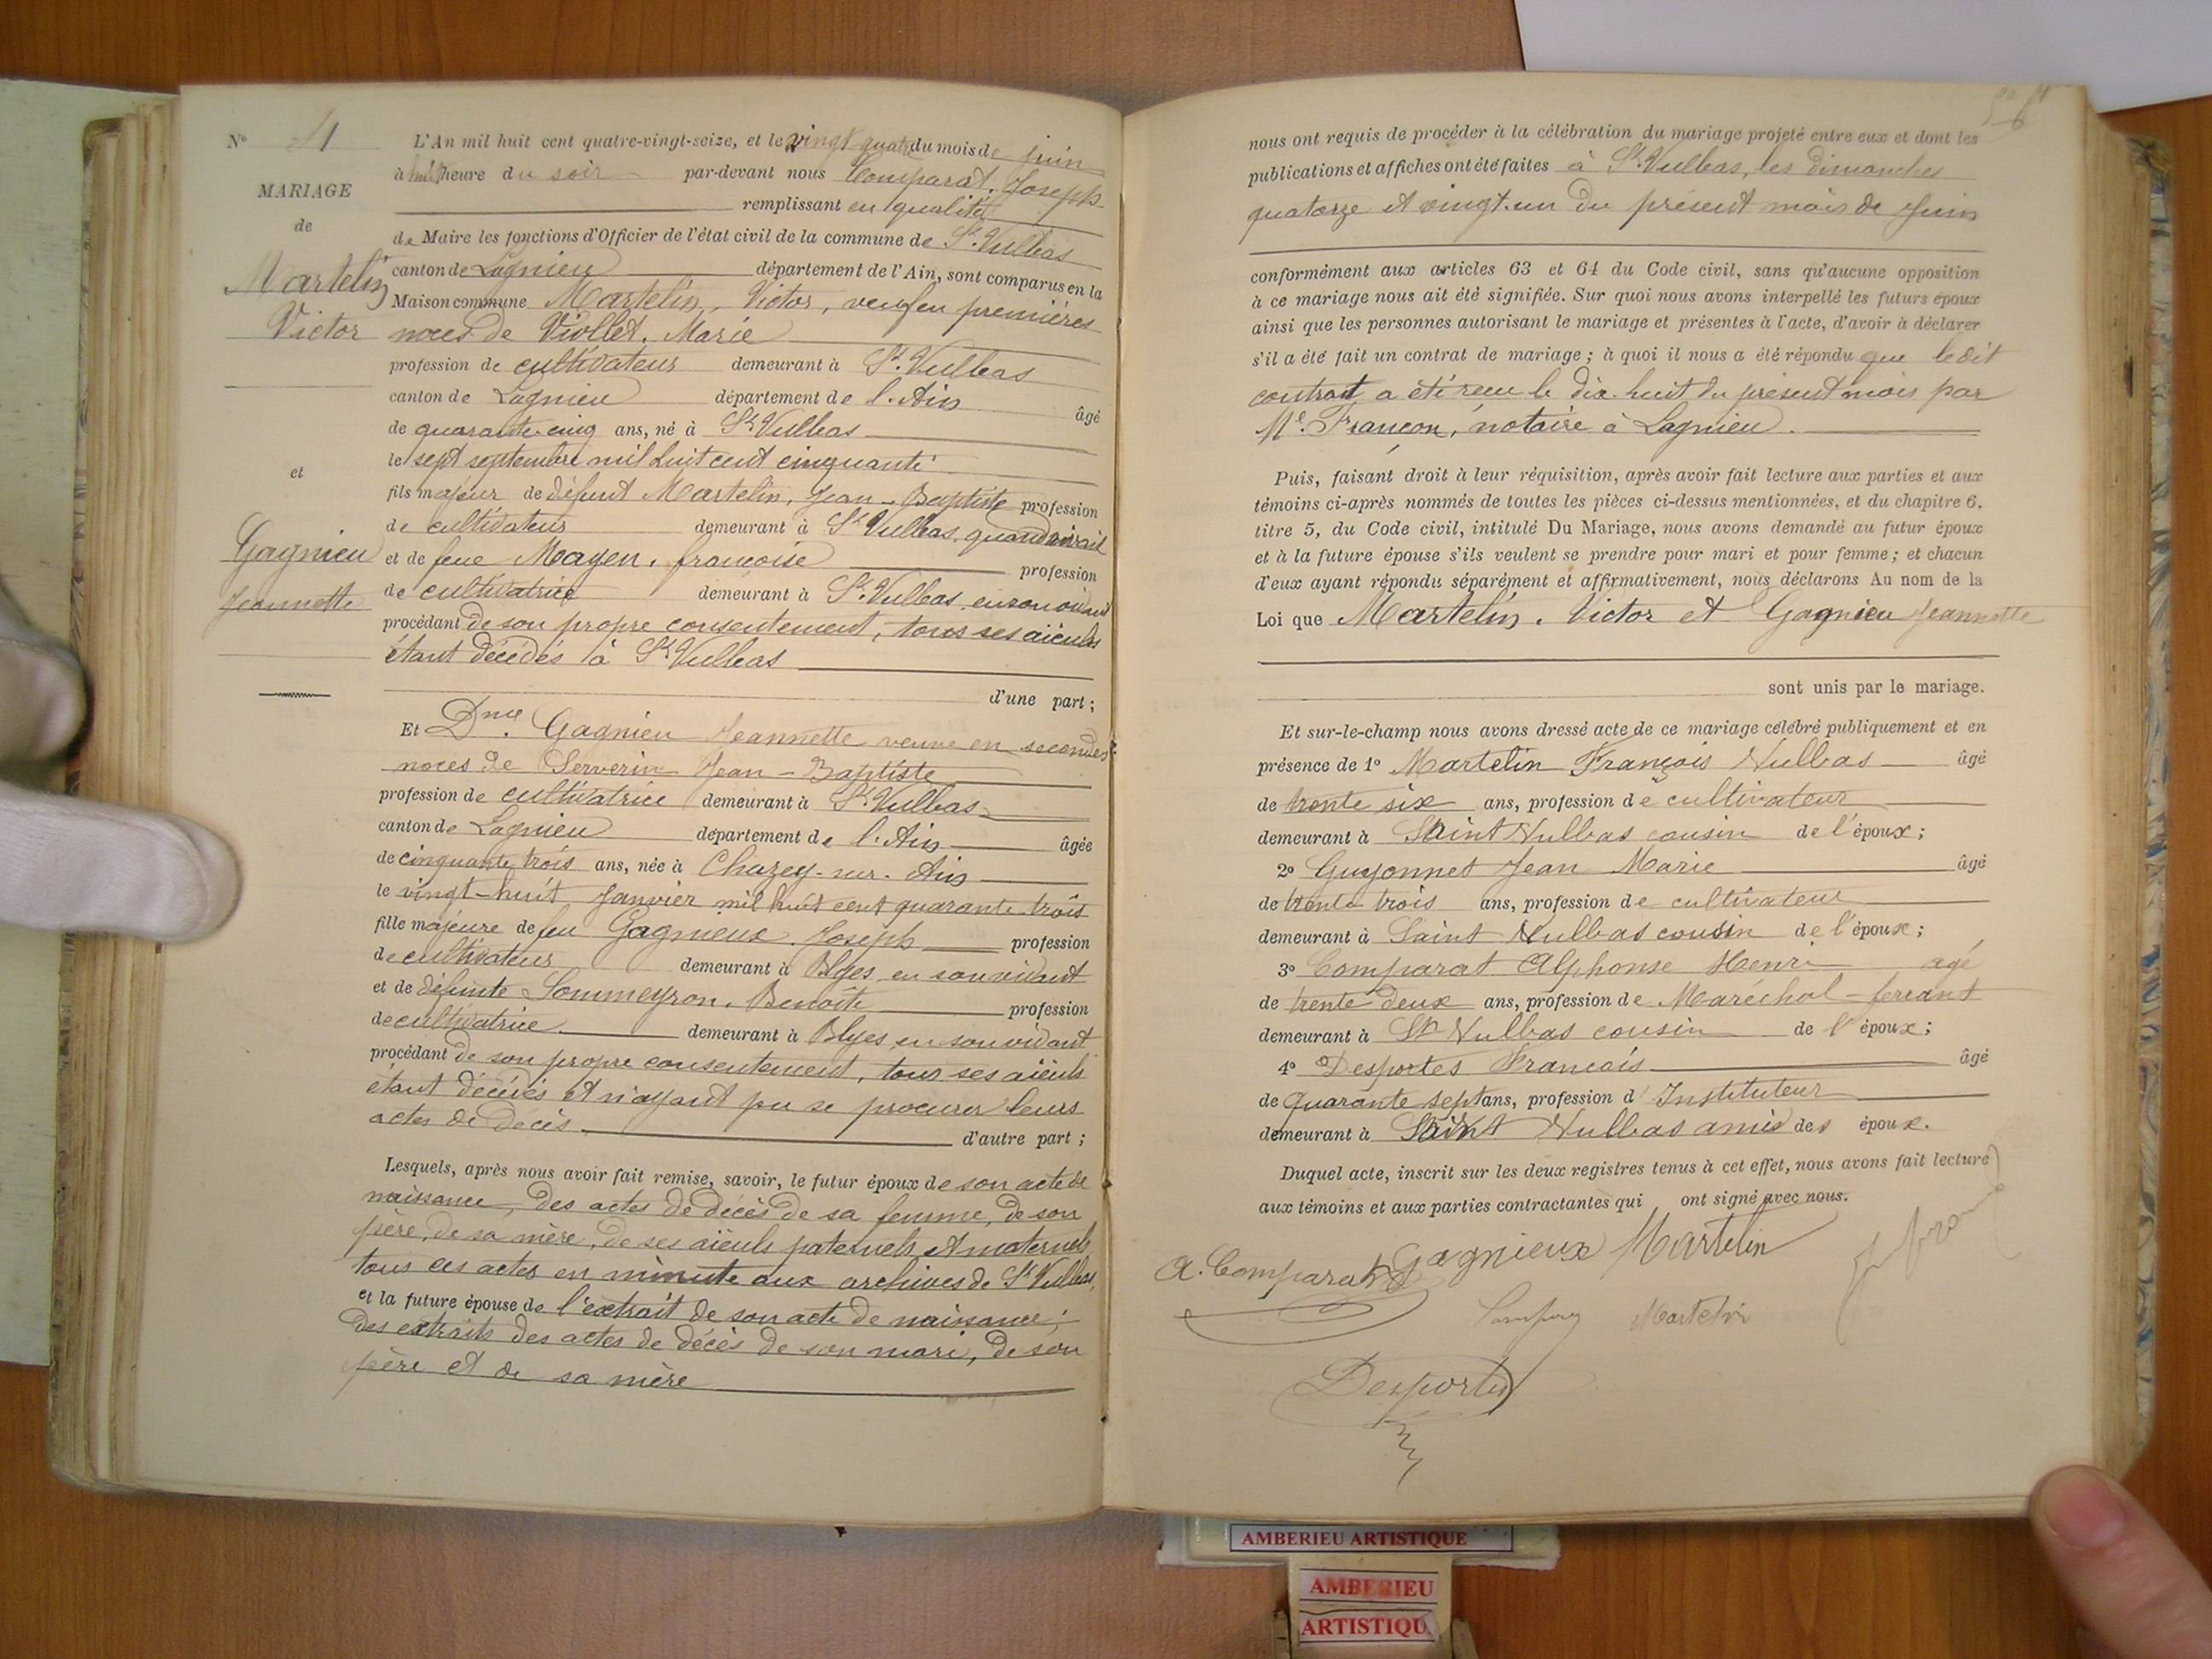 N° 11
MARIAGE
de
Martelin
Victor
et
Gagnieu
Jeannette
L'An mil huit cent quatre-vingt-seize, et le vingt quatre du mois de juin
à huit heure du soir par-devant nous Comparat, Joseph
remplissant en qualité
de Maire les fonctions d'Officier de l'état civil de la commune de St. Vulbas
canton de Lagnieu département de l'Ain, sont comparus en la
Maison commune Martelin, Victor, veuf en premières
noces de Viollet, Marie
profession de cultivateur demeurant à St. Vulbas
canton de Lagnieu département de l'Ain âgé
de quarante-cinq ans, né à St. Vulbas
le sept septembre mil huit cent cinquante
fils majeur de défunt Martelin, Jean-Baptiste profession
de cultivateur demeurant à St. Vulbas, quand vivait
et de feue Mayen, françoise profession
de cultivatrice demeurant à St. Vulbas, en son vivant
procédant de son propre consentement, tous ses aïeuls
étant décédés à St. Vulbas
d'une part;
Et Dme. Gagnieu Jeannette veuve en secondes
noces de Serverin Jean-Baptiste
profession de cultivatrice demeurant à St. Vulbas
canton de Lagnieu département de l'Ain âgée
de cinquante trois ans, née à Chazey-sur-Ain
le vingt-huit Janvier mil huit cent quarante trois
fille majeure de feu Gagnieux Joseph profession
de cultivateur demeurant à Blyes, en son vivant
et de défunte Sommeyron, Benoîte profession
de cultivatrice demeurant à Blyes, en son vivant
procédant de son propre consentement, tous ses aïeuls
étant décédés et n'ayant pu se procurer leurs
actes de décès d'autre part;
Lesquels, après nous avoir fait remise, savoir, le futur époux de son acte de
naissance, des actes de décès de sa femme, de son
père, de sa mère, de ses aïeuls paternels et maternels,
tous ces actes en minute aux archives de St. Vulbas,
et la future épouse de l'extrait de son acte de naissance;
des extraits des actes de décès de son mari, de son
père et de sa mère
nous ont requis de procéder à la célébration du mariage projeté entre eux et dont les
publications et affiches ont été faites à St. Vulbas, les dimanches
quatorze et vingt-un du présent mois de Juin
conformément aux articles 63 et 64 du Code civil, sans qu'aucune opposition
à ce mariage nous ait été signifiée. Sur quoi nous avons interpellé les futurs époux
ainsi que les personnes autorisant le mariage et présentes à l'acte, d'avoir à déclarer
s'il a été fait un contrat de mariage; à quoi il nous a été répondu que ledit
contrat a été reçu le dix-huit du présent mois par
Me. Françon, notaire à Lagnieu.
Puis, faisant droit à leur réquisition, après avoir fait lecture aux parties et aux
témoins ci-après nommés de toutes les pièces ci-dessus mentionnées, et du chapitre 6,
titre 5, du Code civil, intitulé Du Mariage, nous avons demandé au futur époux
et à la future épouse s'ils veulent se prendre pour mari et pour femme; et chacun
d'eux ayant répondu séparément et affirmativement, nous déclarons Au nom de la
Loi que Martelin, Victor et Gagnieu Jeannette
sont unis par le mariage.
Et sur-le-champ nous avons dressé acte de ce mariage célébré publiquement et en
présence de 1° Martelin François Vulbas âgé
de trente six ans, profession de cultivateur
demeurant à Saint Vulbas cousin de l'époux;
2° Guyonnet Jean Marie âgé
de trente trois ans, profession de cultivateur
demeurant à Saint Vulbas cousin de l'époux;
3° Comparat Alphonse Henri agé
de trente deux ans, profession de Maréchal-ferrant
demeurant à St Vulbas cousin de l'époux;
4° Desportes Francois âgé
de quarante sept ans, profession d'Instituteur
demeurant à Saint Vulbas ami des époux.
Duquel acte, inscrit sur les deux registres tenus à cet effet, nous avons fait lecture
aux témoins et aux parties contractantes qui ont signé avec nous.
A. Comparat Gagnieux Martelin
Martelin
Desportes
AMBERIEU ARTISTIQUE
AMBERIEU
ARTISTIQU